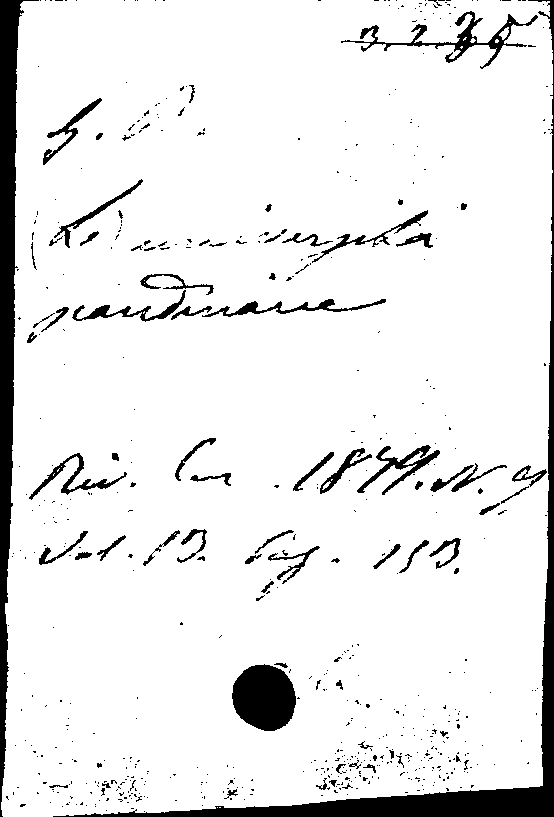 3.2.35
G. P.
(Le) università
scandinave
Riv. Eur. 1879. N. 9
Vol. 13. Pag. 153.